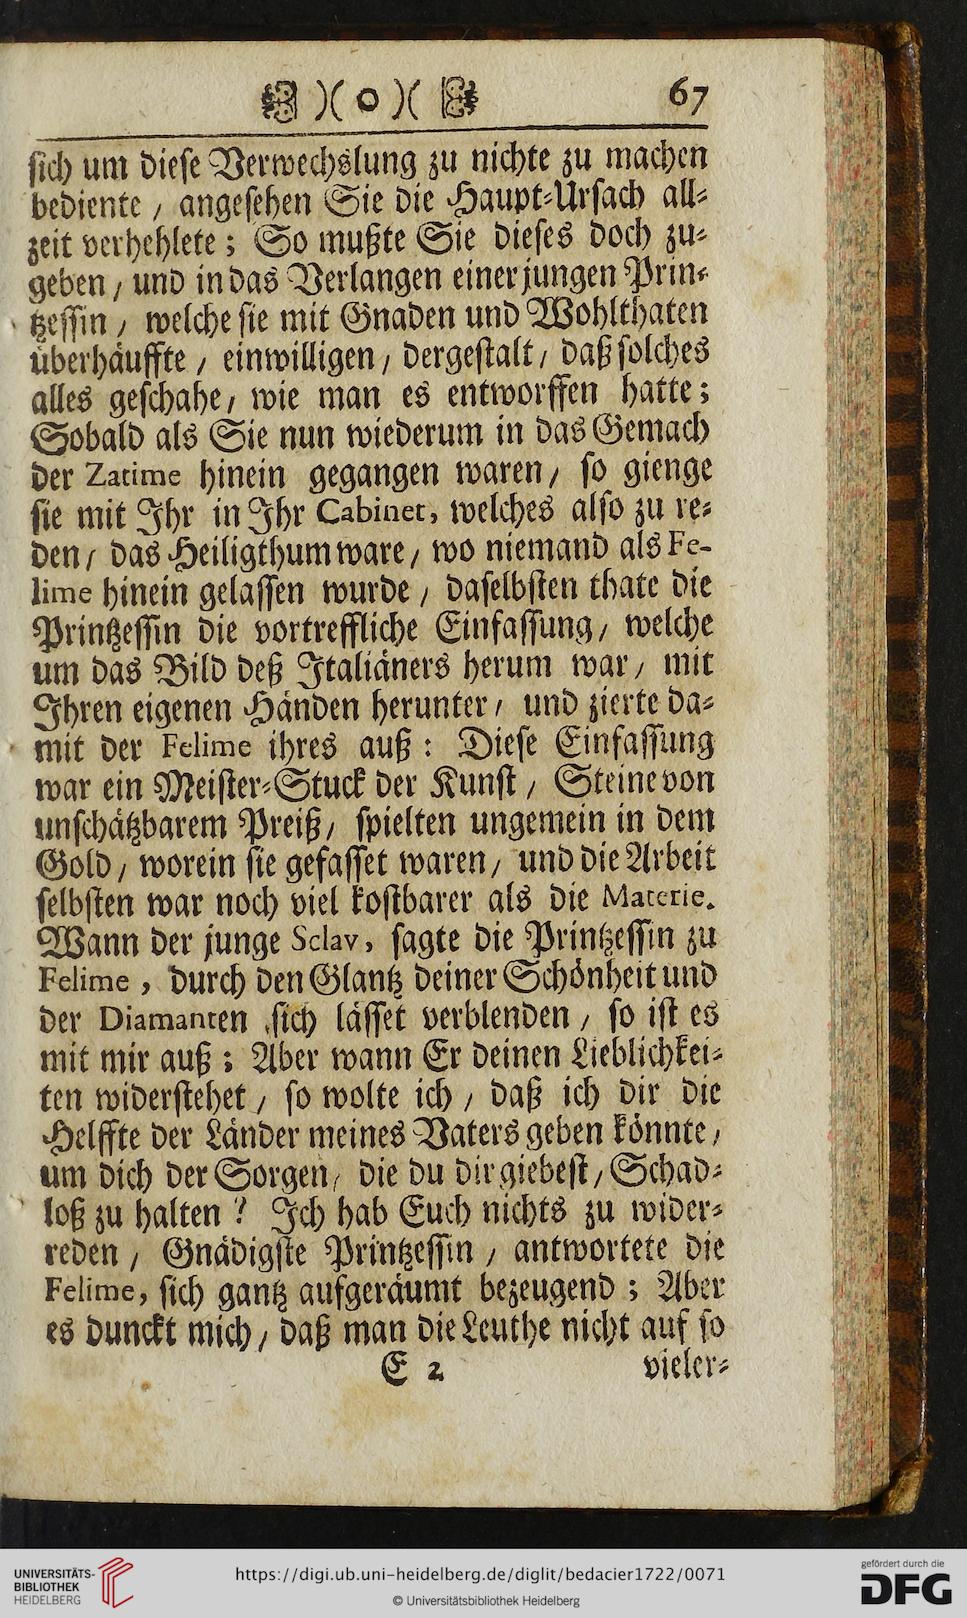 )( o )( 67
sich um diese Verwechslung zu nichte zu machen
bediente / angesehen Sie die Haupt-Ursach all-
zeit verhehlete; So mußte Sie dieses doch zu-
geben / und in das Verlangen einer jungen Prin-
tzessin / welche sie mit Gnaden und Wohlthaten
überhäuffte / einwilligen / dergestalt / daß solches
alles geschahe / wie man es entworffen hatte;
Sobald als Sie nun wiederum in das Gemach
der Zatime hinein gegangen waren / so gienge
sie mit Ihr in Ihr Cabinet, welches also zu re-
den / das Heiligthum ware / wo niemand als Fe-
lime hinein gelassen wurde / daselbsten thate die
Printzessin die vortreffliche Einfassung / welche
um das Bild deß Italiäners herum war / mit
Ihren eigenen Händen herunter / und zierte da-
mit der Felime ihres auß: Diese Einfassung
war ein Meister-Stuck der Kunst / Steine von
unschätzbarem Preiß / spielten ungemein in dem
Gold / worein sie gefasset waren / und die Arbeit
selbsten war noch viel kostbarer als die Materie.
Wann der junge Sclav, sagte die Printzessin zu
Felime, durch den Glantz deiner Schönheit und
der Diamanten sich lässet verblenden / so ist es
mit mir auß; Aber wann Er deinen Lieblichkei-
ten widerstehet / so wolte ich / daß ich dir die
Helffte der Länder meines Vaters geben könnte /
um dich der Sorgen / die du dir giebest / Schad-
loß zu halten? Ich hab Euch nichts zu wider-
reden / Gnädigste Printzessin / antwortete die
Felime, sich gantz aufgeräumt bezeugend; Aber
es dunckt mich / daß man die Leuthe nicht auf so
E 2 vieler-
UNIVERSITÄTS-
BIBLIOTHEK
HEIDELBERG
https://digi.ub.uni-heidelberg.de/diglit/bedacier1722/0071
© Universitätsbibliothek Heidelberg
gefördert durch die
DFG